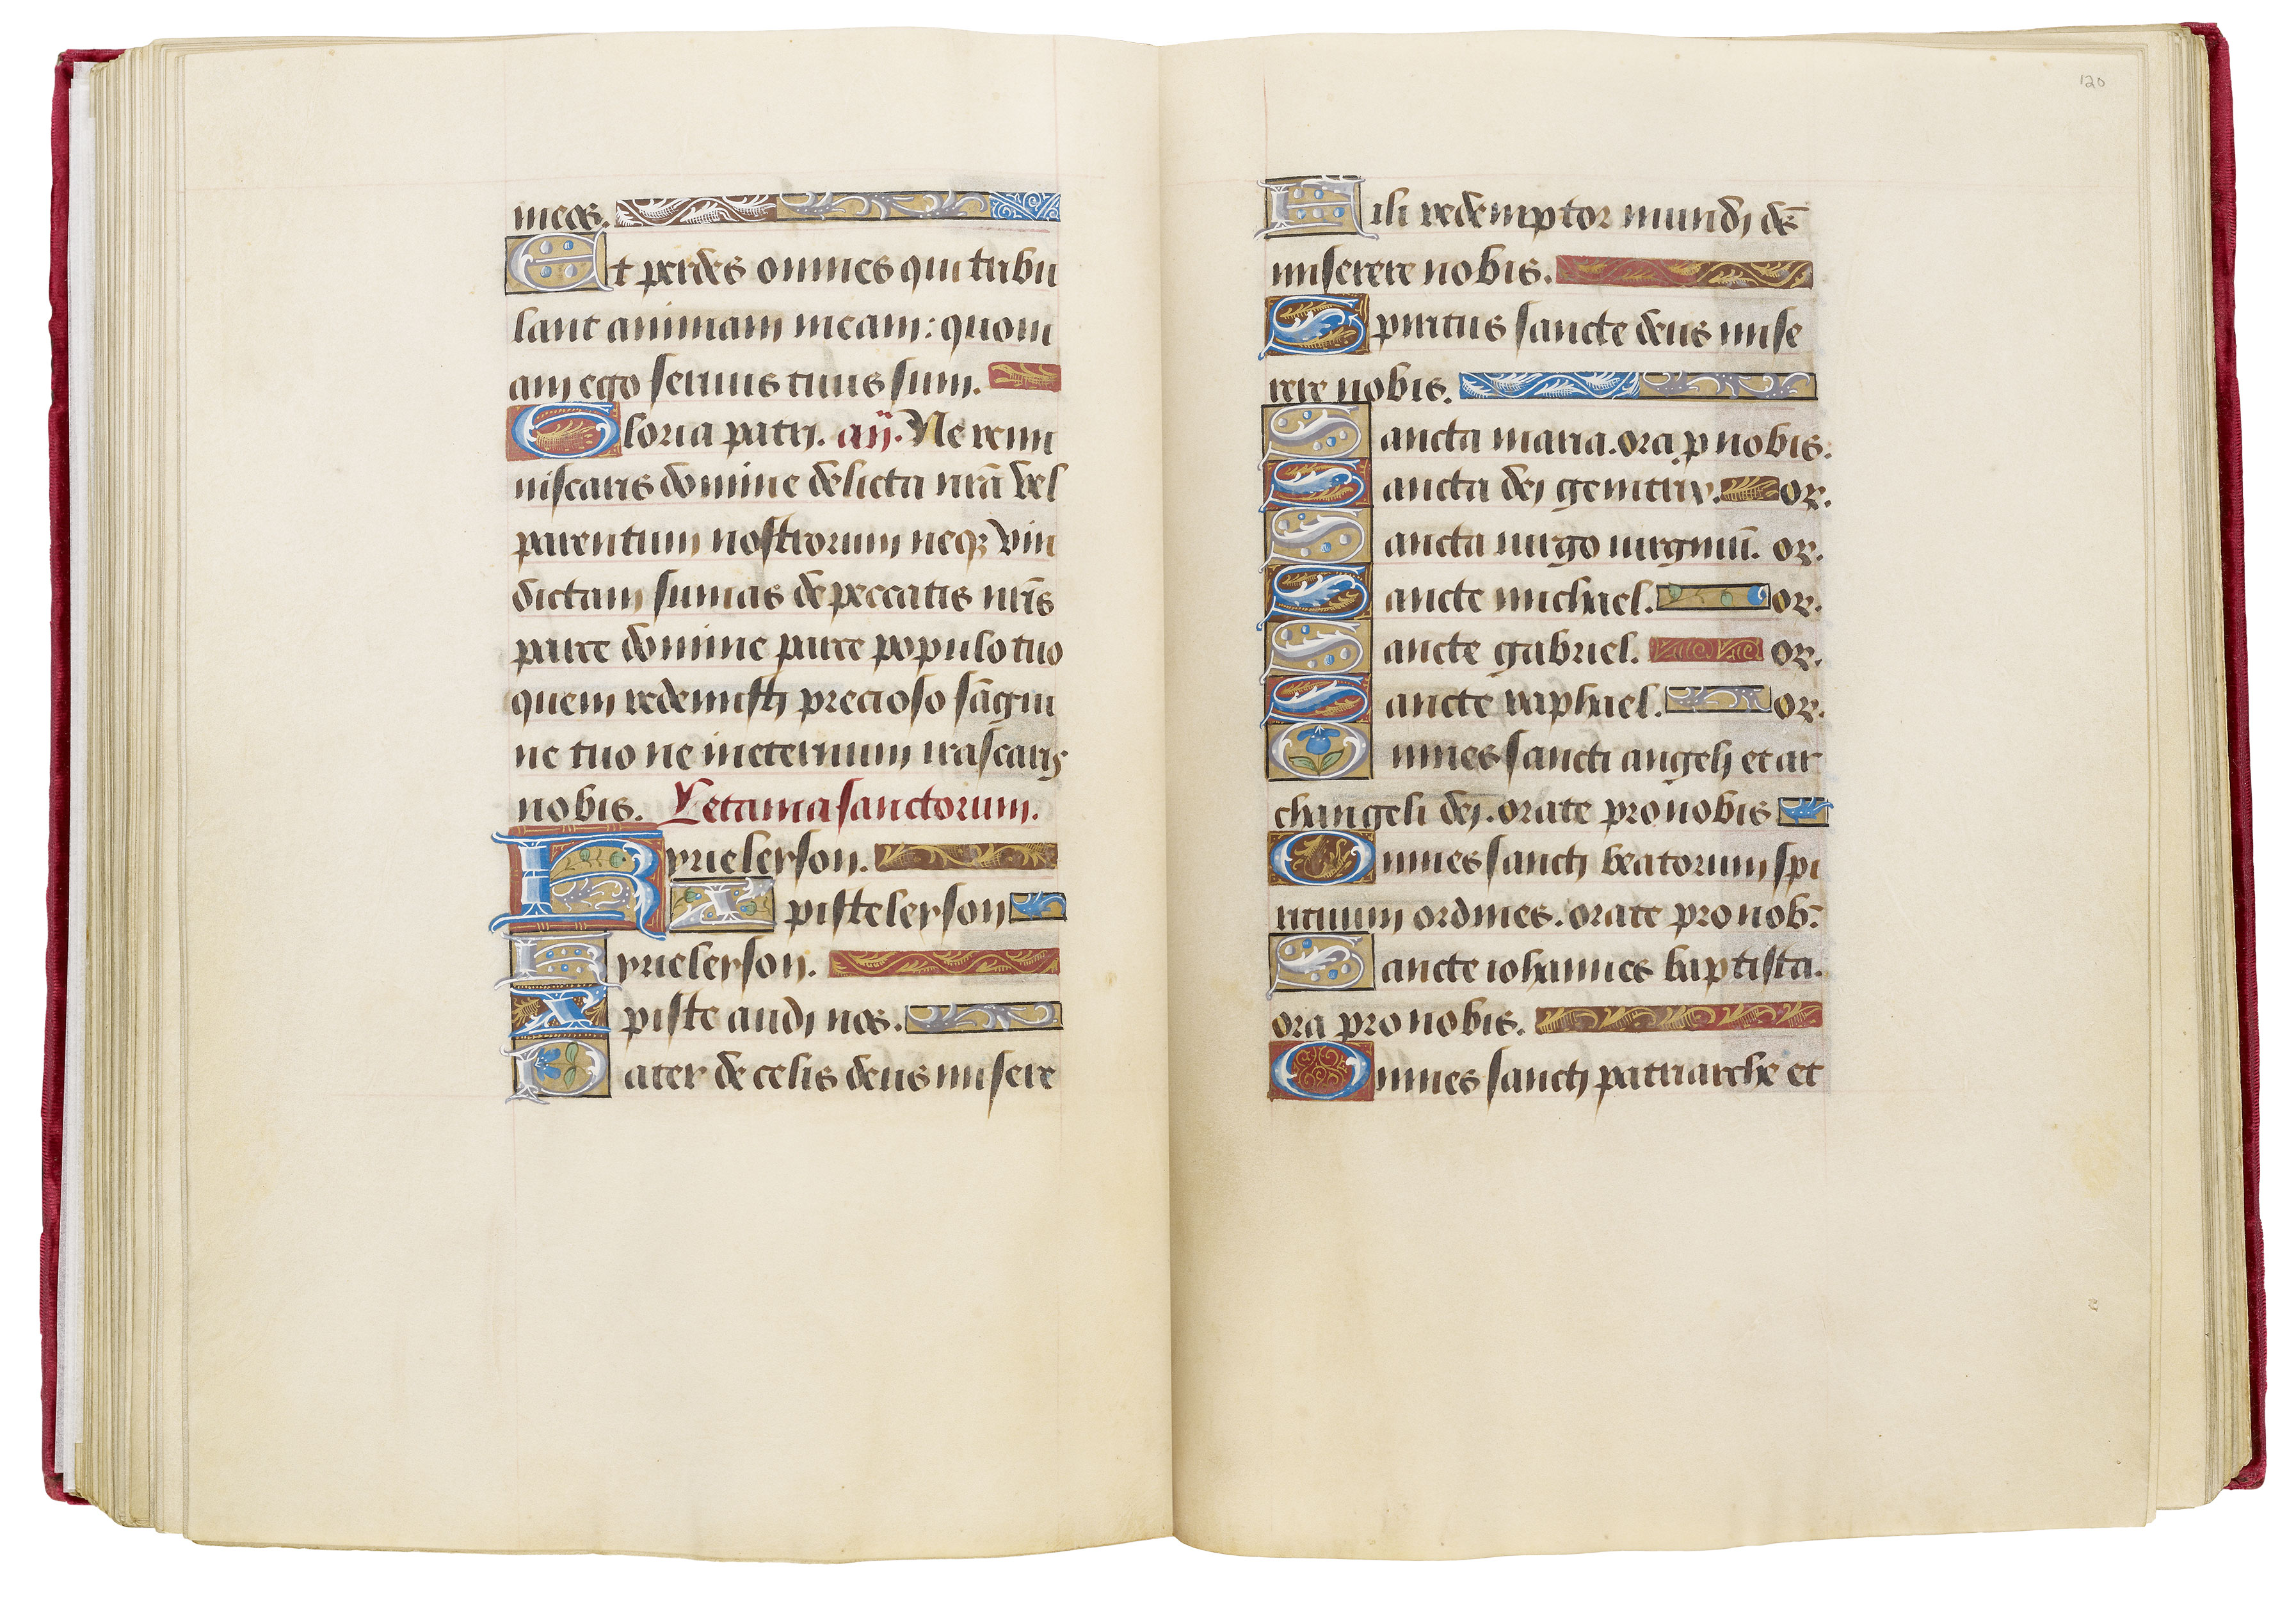 meos.
Et perdes omnes qui tribu
lant animam meam: quoni
am ego seruus tuus sum.
Gloria patri. añ. Ne remi
niscaris domine delicta nr̃a vel
parentum nostrorum neqʒ vin
dictam sumas de peccatis nr̃is
parce domine parce populo tuo
quem redemisti precioso sãgui
ne tuo ne ineternum irascaris
nobis. Letania sanctorum.
Kyrieleyson.
Xpisteleyson
Kyrieleyson.
Xpiste audi nos.
Pater de celis deus misere
120
Fili redemptor mundi de᷒
miserere nobis.
Spiritus sancte deus mise
rere nobis.
Sancta maria. ora p nobis.
Sancta dei genitrix. or.
Sancta uirgo uirginũ. or.
Sancte michael. or.
Sancte gabriel. or.
Sancte raphael. or.
Omnes sancti angeli et ar
changeli dei. orate pro nobis
Omnes sancti beatorum spi
rituum ordines. orate pro nob̃.
Sancte iohannes baptista.
ora pro nobis.
Omnes sancti patriarche et